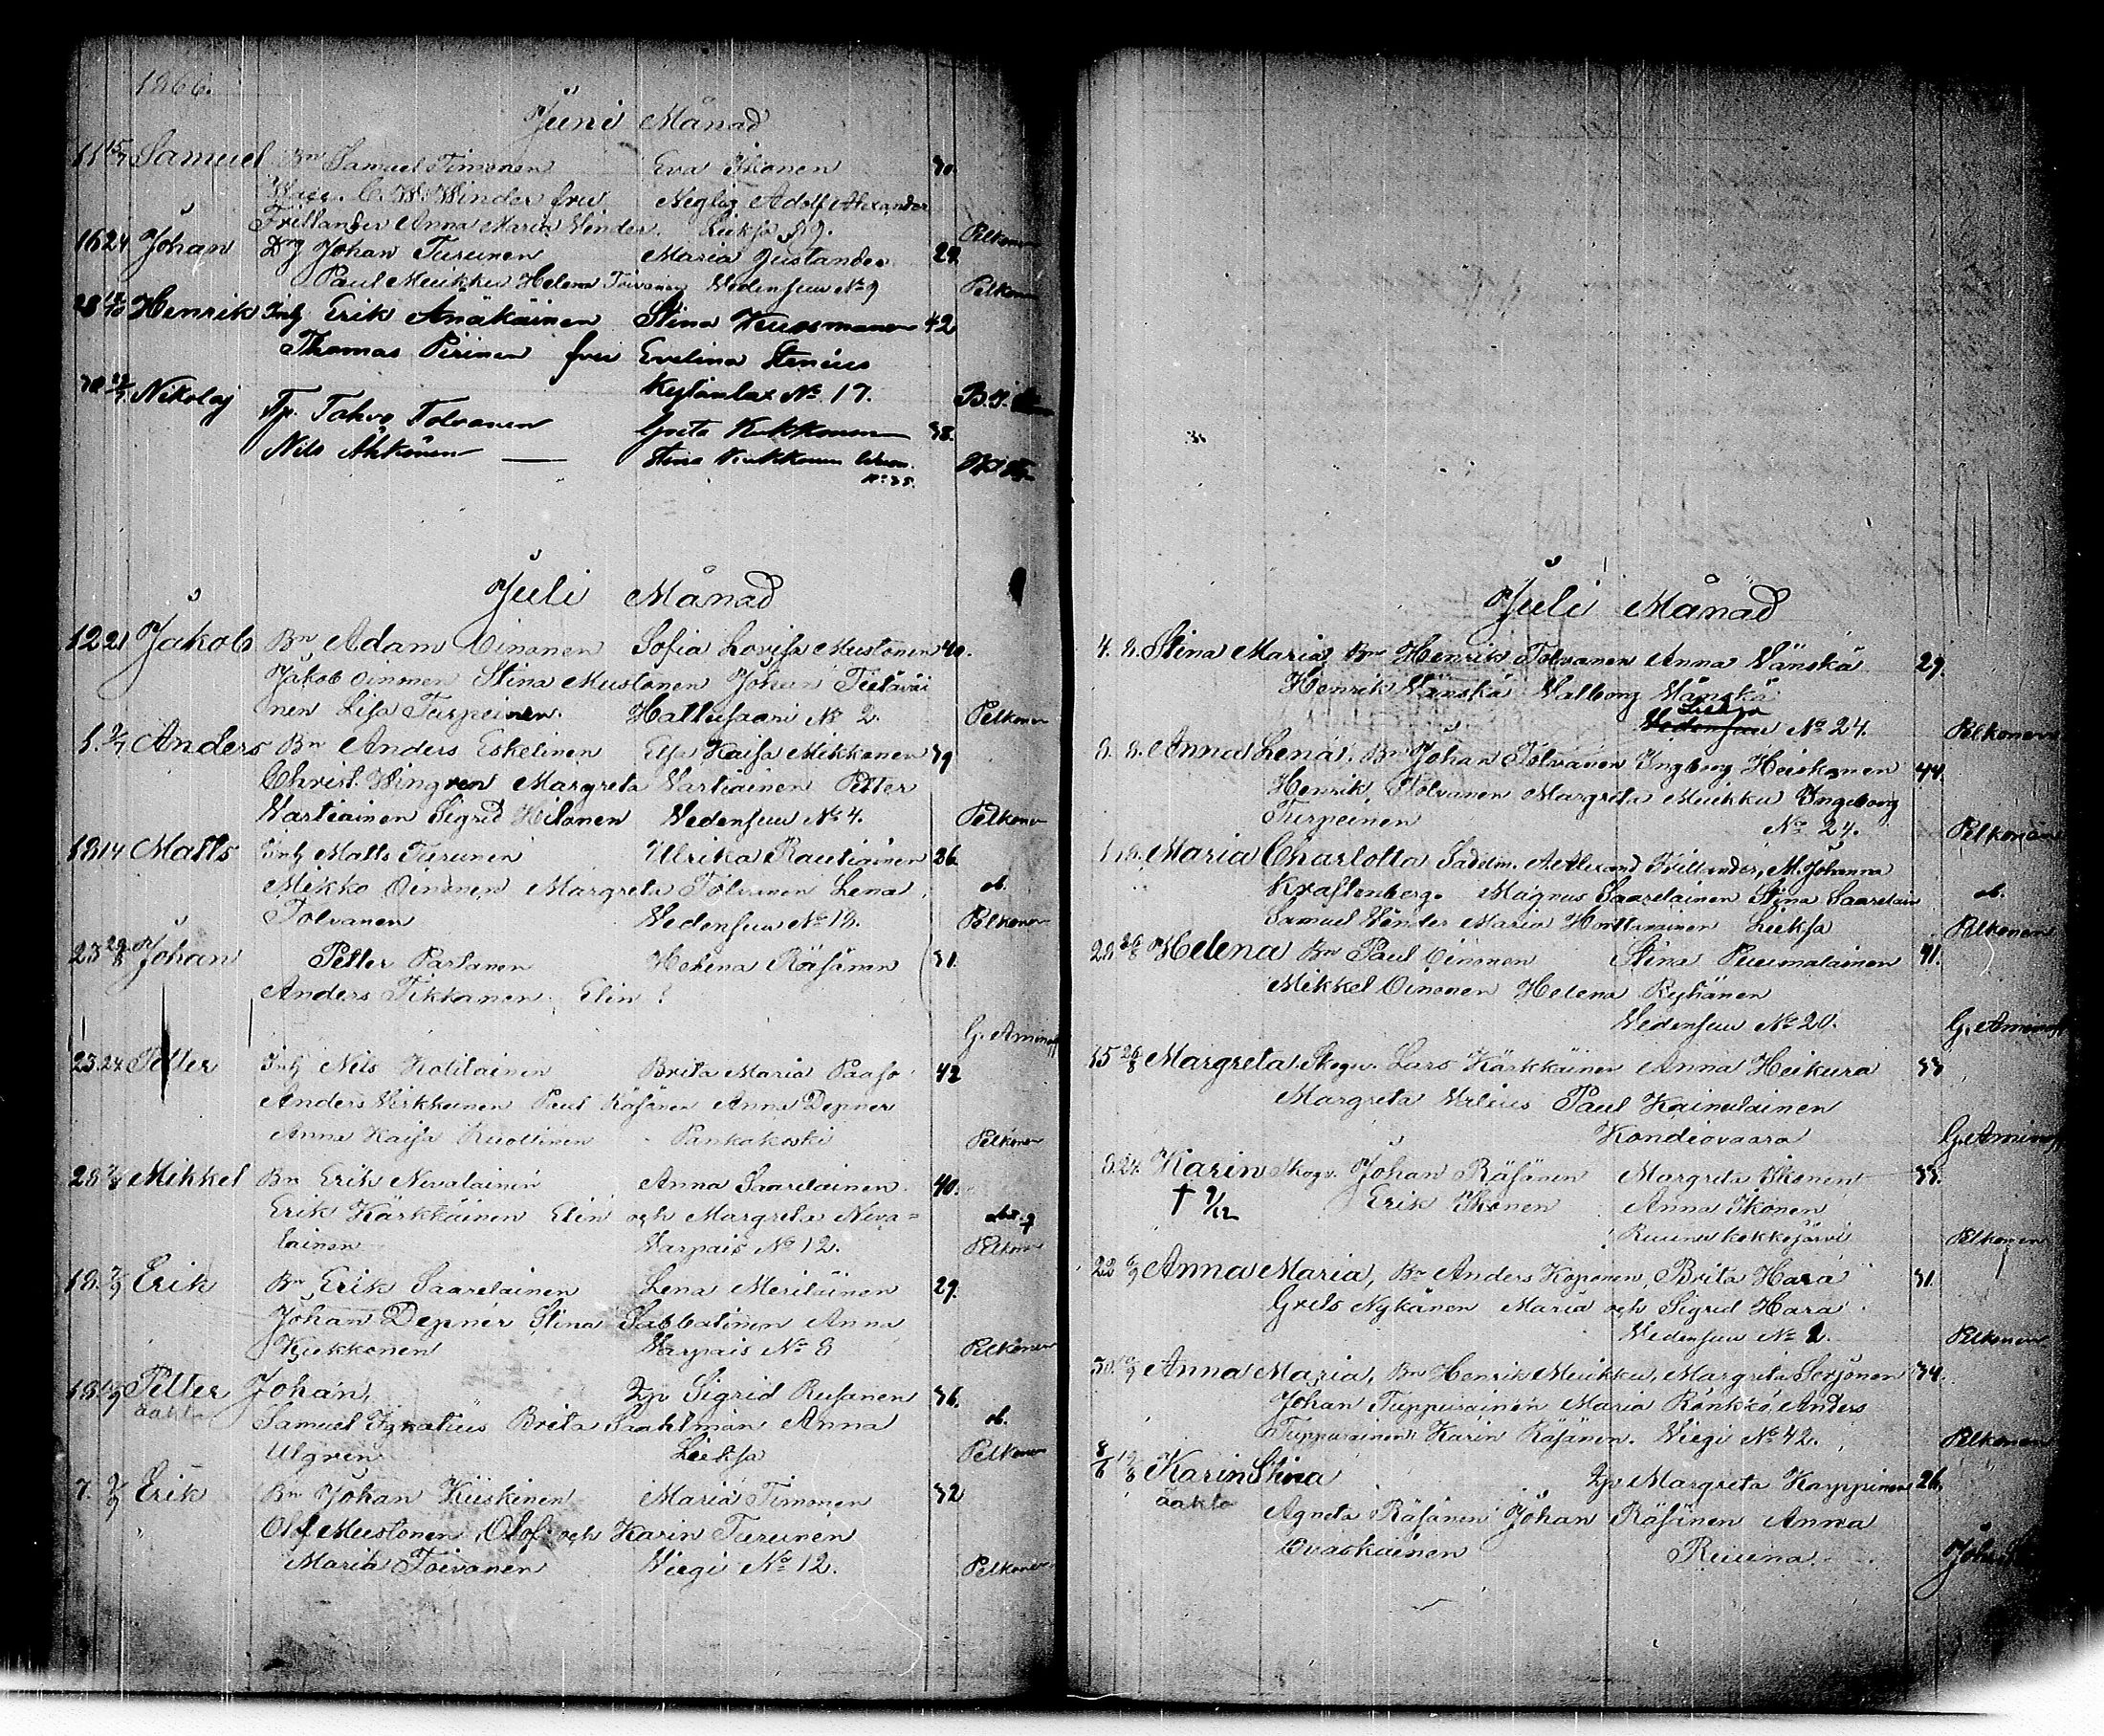 1866.
Juni Månad
11 15/7 Samuel Bn Samuel Timonen Eva Ikonen 30.
C. W. Winder fru Neglig Adolf Alexander
Frellander Anna Maria Winder. Lieksa № 9. Pelkonen
16 24 Johan Johan Turunen Maria Justander 28.
Paul Muikku Helena Toivanen Vedensuu № 9 Pelkonen
28 Henrik Inh Erik Änäkäinen Stina Kuosmanen 42
Thomas Pirinen fru Evelina Stenius
Kylänlax № 17.
30 Nikolaj Tp. Tahvo Tolvanen Greta Kukkonen 38.
Nils Ahkonen — Stina Kukkonen
№ 35.
Juli Månad
12 21 Jakob Bn Adam Oinonen Sofia Lovisa Mustonen 40.
Jakob Oinonen Stina Mustonen Johan Tietäväi
nen Lisa Turpeinen. Hattusaari № 2. Pelkonen
1. Anders Bn Anders Eskelinen Elsa Kaisa Mikkonen 39
Christ. Wingren Margreta Vartiainen Petter
Vartiainen Sigrid Hilonen Vedensuu № 4. Pelkonen
13 14 Matts Inh Matts Turunen Ulrika Rautiainen 36.
Mikko Oinonen Margreta Tolvanen Lena ob.
Tolvanen Vedensuu № 18. Pelkonen
23 29/8 Johan Petter Partanen Helena Räsänen 31.
Anders Tikkanen Elin ?
G. Aminoff
23. 24 Petter Inh Nils Kotilainen Brita Maria Paaso 42
Anders Virkkunen Paul Räsänen Anna Depner
Anna Kaisa Ruottinen Pankakoski Pelkonen
28 Mikkel Bn Erik Nevalainen Anna Saarelainen. 40.
Erik Kärkkäinen Elin och Margreta Neva=
lainen Varpais № 12. Pelkonen
18. 2/9 Erik Bn Erik Saarelainen Lena Meriläinen 29.
Johan Depner Stina Sabbatinen Anna
Kukkonen Varpais № 8 Pelkonen
18 Petter Johan, Sigrid Rusanen 36.
oäkta Samuel Ignatius Brita Saahlman Anna ob.
Ulgren Lieksa Pelkonen
7. 2/9 Erik Bn Johan Kiiskinen Maria Timonen 32
Olof Mustonen Olof och Karin Turunen
Maria Toivanen Viegi № 12. Pelkonen
Juli Månad
4. 8. Stina Maria, Bn Henrik Tolvanen Anna Vänskä 29.
Henrik Vänskä Valborg Vänskä
Lieksa
Vedensuu № 24. Pelkonen
8. 8. Anna Lena. Bn Johan Tolvanen Ingborg Heiskanen 44.
Henrik Tolvanen Margreta Muikku Ingeborg
Turpeinen № 24. Pelkonen
1. 8. Maria Charlotta Sadelm. A. Alexand Frillander, M. Johanna
Kraftenberg. Magnus Saarelainen Stina Saarelain ob.
Samuel Winder Maria Honttanainen Lieksa Pelkonen
22 26/8 Helena Bn Paul Oinonen Stina Puumalainen 41.
Mikkel Oinonen Helena Ryhänen
Vedensuu № 20. G. Aminoff
15 26/8 Margreta. Skogv. Lars Kärkkäinen Anna Heikura 33
Margreta Valius Paul Kainulainen
Kondiovaara G. Aminoff
8. 24. Karin Skogv. Johan Räsänen Margreta Ikonen 33.
† 9/12 Erik Ikonen Anna Ikonen
Ruunakokkojärvi Pelkonen
22 Anna Maria, Bn Anders Koponen, Brita Hara 31.
Grels Nykänen Maria och Sigrid Hara.
Vedensuu № 2. Pelkonen
30. Anna Maria, Bn Henrik Muikku, Margreta Sorjonen 34.
Johan Tuppurainen Maria Rönkkö, Anders
Tuppurainen Karin Räsänen. Viegi № 42. Pelkonen
8/6 19/8 Karin Stina Margreta Karppinen 26.
oäkta Agneta Räsänen Johan Räsänen Anna
Ovaskainen Ruuna.